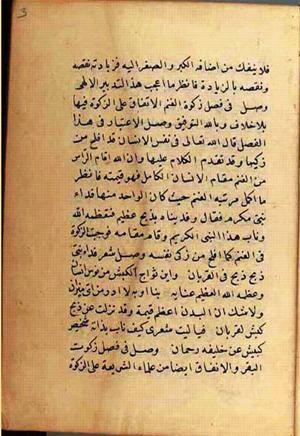 فلا ينفك من اضافة الكبر والصغر اليه فزيادته نقصه
ونقصه بالزيادة فانظر ما اعجب هذا التدبير الالهى
وصل فى فصل زكوة الغنم الاتفاق على الزكوة فيها
بلا خلاف وبالله التوفيق وصل الاعتبار فى هذا
الفصل قال الله تعالى فى نفس الانسان قد افلح من
زكيها وقد تقدم الكلام عليها وان الله اقام الراس
من الغنم مقام الانسان الكامل فهو قيمته فانظر
ما اكمل مرتبه الغنم حيث كان الواحد منها فداء
نبى مكرم فقال وفديناه بذبح عظيم فعظمه الله
وناب هذا النبى الكريم وقام مقامه فوجبت الزكوة
فى الغنم كما افلح من زكى نفسه وصل شعر فداء نبى
ذبح ذبح فى القربان واين ثواج الكبش من نوس انسان
وعظمه الله العظيم عنايه بنا او به لا ادر من اى ميزان
ولا شك ان البدن اعظم قيمة وقد نزلت عن ذبح
كبش لقربان فيا ليت شعرى كيف ناب بذاته شخيص
كبيش عن خليفه رحمان وصل فى فصل زكوت
البقر والاتفاق ايضا من علماء الشريعة على الزكوة